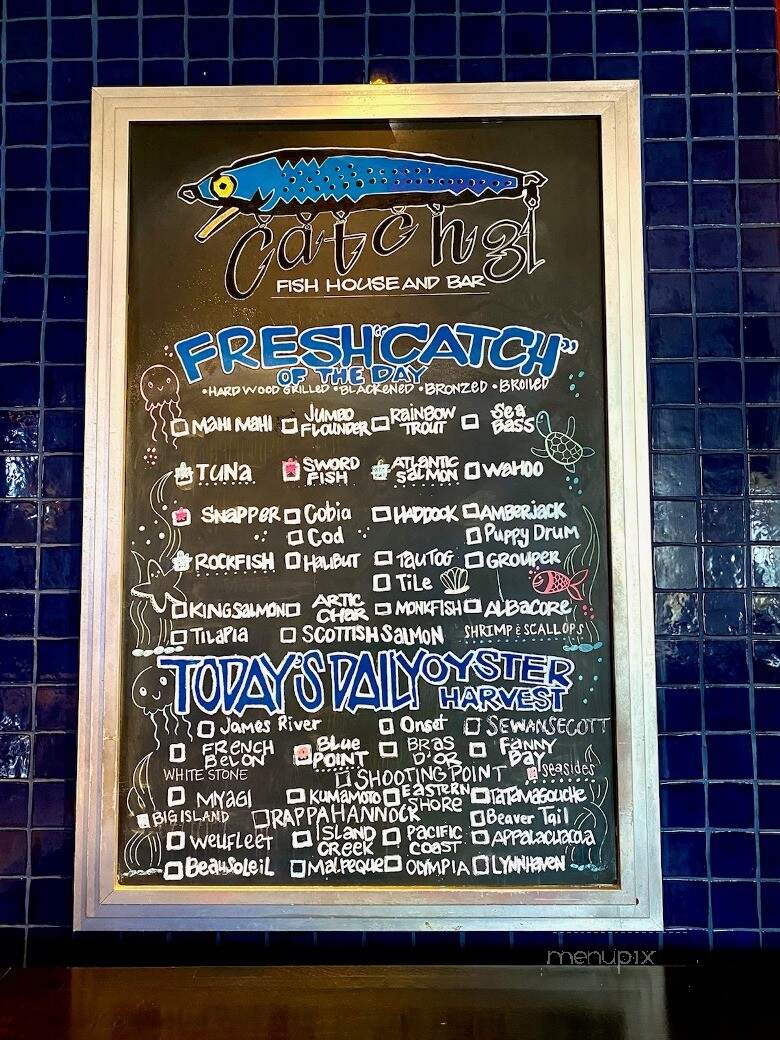 Catch 31
FISH HOUSE AND BAR
FRESH "CATCH"
OF THE DAY
•HARD WOOD GRILLED •BLACKENED •BRONZED •BROILED
MAHI MAHI JUMBO FLOUNDER RAINBOW TROUT SEA BASS
TUNA SWORD FISH ATLANTIC SALMON WAHOO
SNAPPER Cobia HADDOCK AMBERJACK
Cod Puppy Drum
ROCKFISH HALIBUT TAUTOG GROUPER
TILE
KING SALMON ARTIC CHAR MONKFISH ALBACORE
TILAPIA SCOTTISH SALMON SHRIMP & SCALLOPS
TODAY'S DAILY OYSTER HARVEST
James River Onset SEWANSECOTT
FRENCH BELON BLUE POINT BRAS D'OR FANNY BAY
WHITE STONE SHOOTING POINT seasides
MYAGI KUMAMOTO EASTERN SHORE TATAMAGOUCHE
BIG ISLAND RAPPAHANNOCK Beaver Tail
WELLFLEET ISLAND CREEK PACIFIC COAST APPALACHACOLA
BEAUSOLEIL MALPEQUE OLYMPIA LYNNHAVEN
menupix